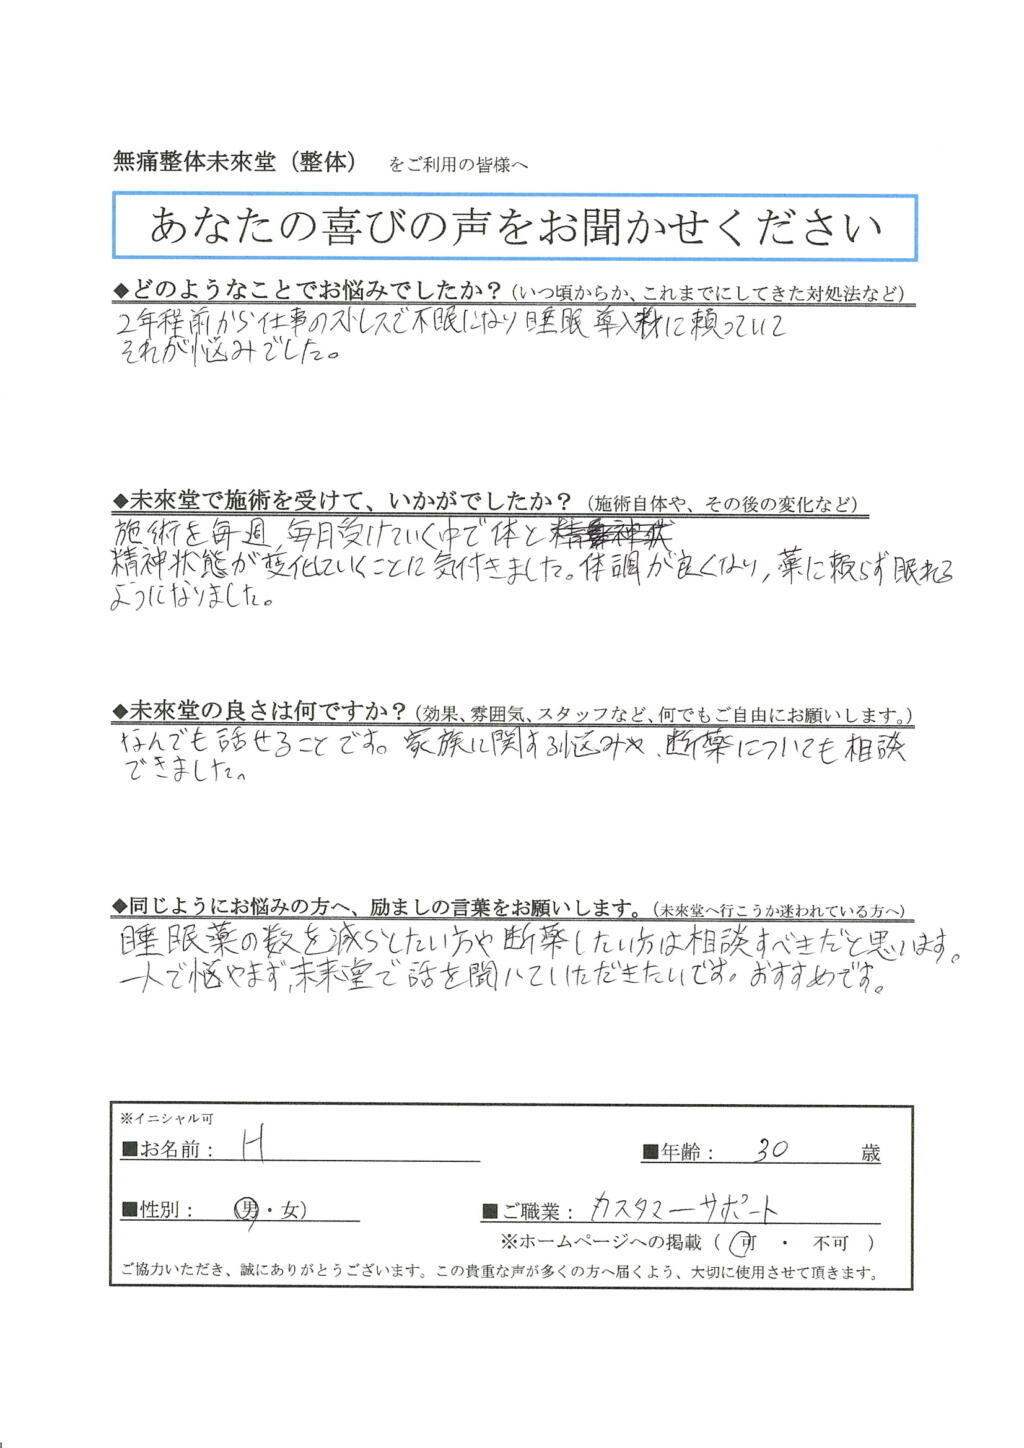 無痛整体未來堂（整体）　をご利用の皆様へ
あなたの喜びの声をお聞かせください
◆どのようなことでお悩みでしたか？（いつ頃からか、これまでにしてきた対処法など）
2年程前から仕事のストレスで不眠になり睡眠導入剤に頼っていて
それが悩みでした。
◆未來堂で施術を受けて、いかがでしたか？（施術自体や、その後の変化など）
施術を毎週、毎月受けていく中で体と
精神状態が変化していくことに気付きました。体調が良くなり，薬に頼らず眠れる
ようになりました。
◆未來堂の良さは何ですか？（効果、雰囲気、スタッフなど、何でもご自由にお願いします。）
なんでも話せることです。家族に関する悩みや、断薬についても相談
できました。
◆同じようにお悩みの方へ、励ましの言葉をお願いします。（未來堂へ行こうか迷われている方へ）
睡眠薬の数を減らしたい方や断薬したい方は相談すべきだと思います。
一人で悩やまず，未来堂で話を聞いていただきたいです。おすすめです。
※イニシャル可
■お名前： H ■年齢： 30 歳
■性別： 男・女） ■ご職業： カスタマーサポート
※ホームページへの掲載（ 可 ・ 不可 ）
ご協力いただき、誠にありがとうございます。この貴重な声が多くの方へ届くよう、大切に使用させて頂きます。